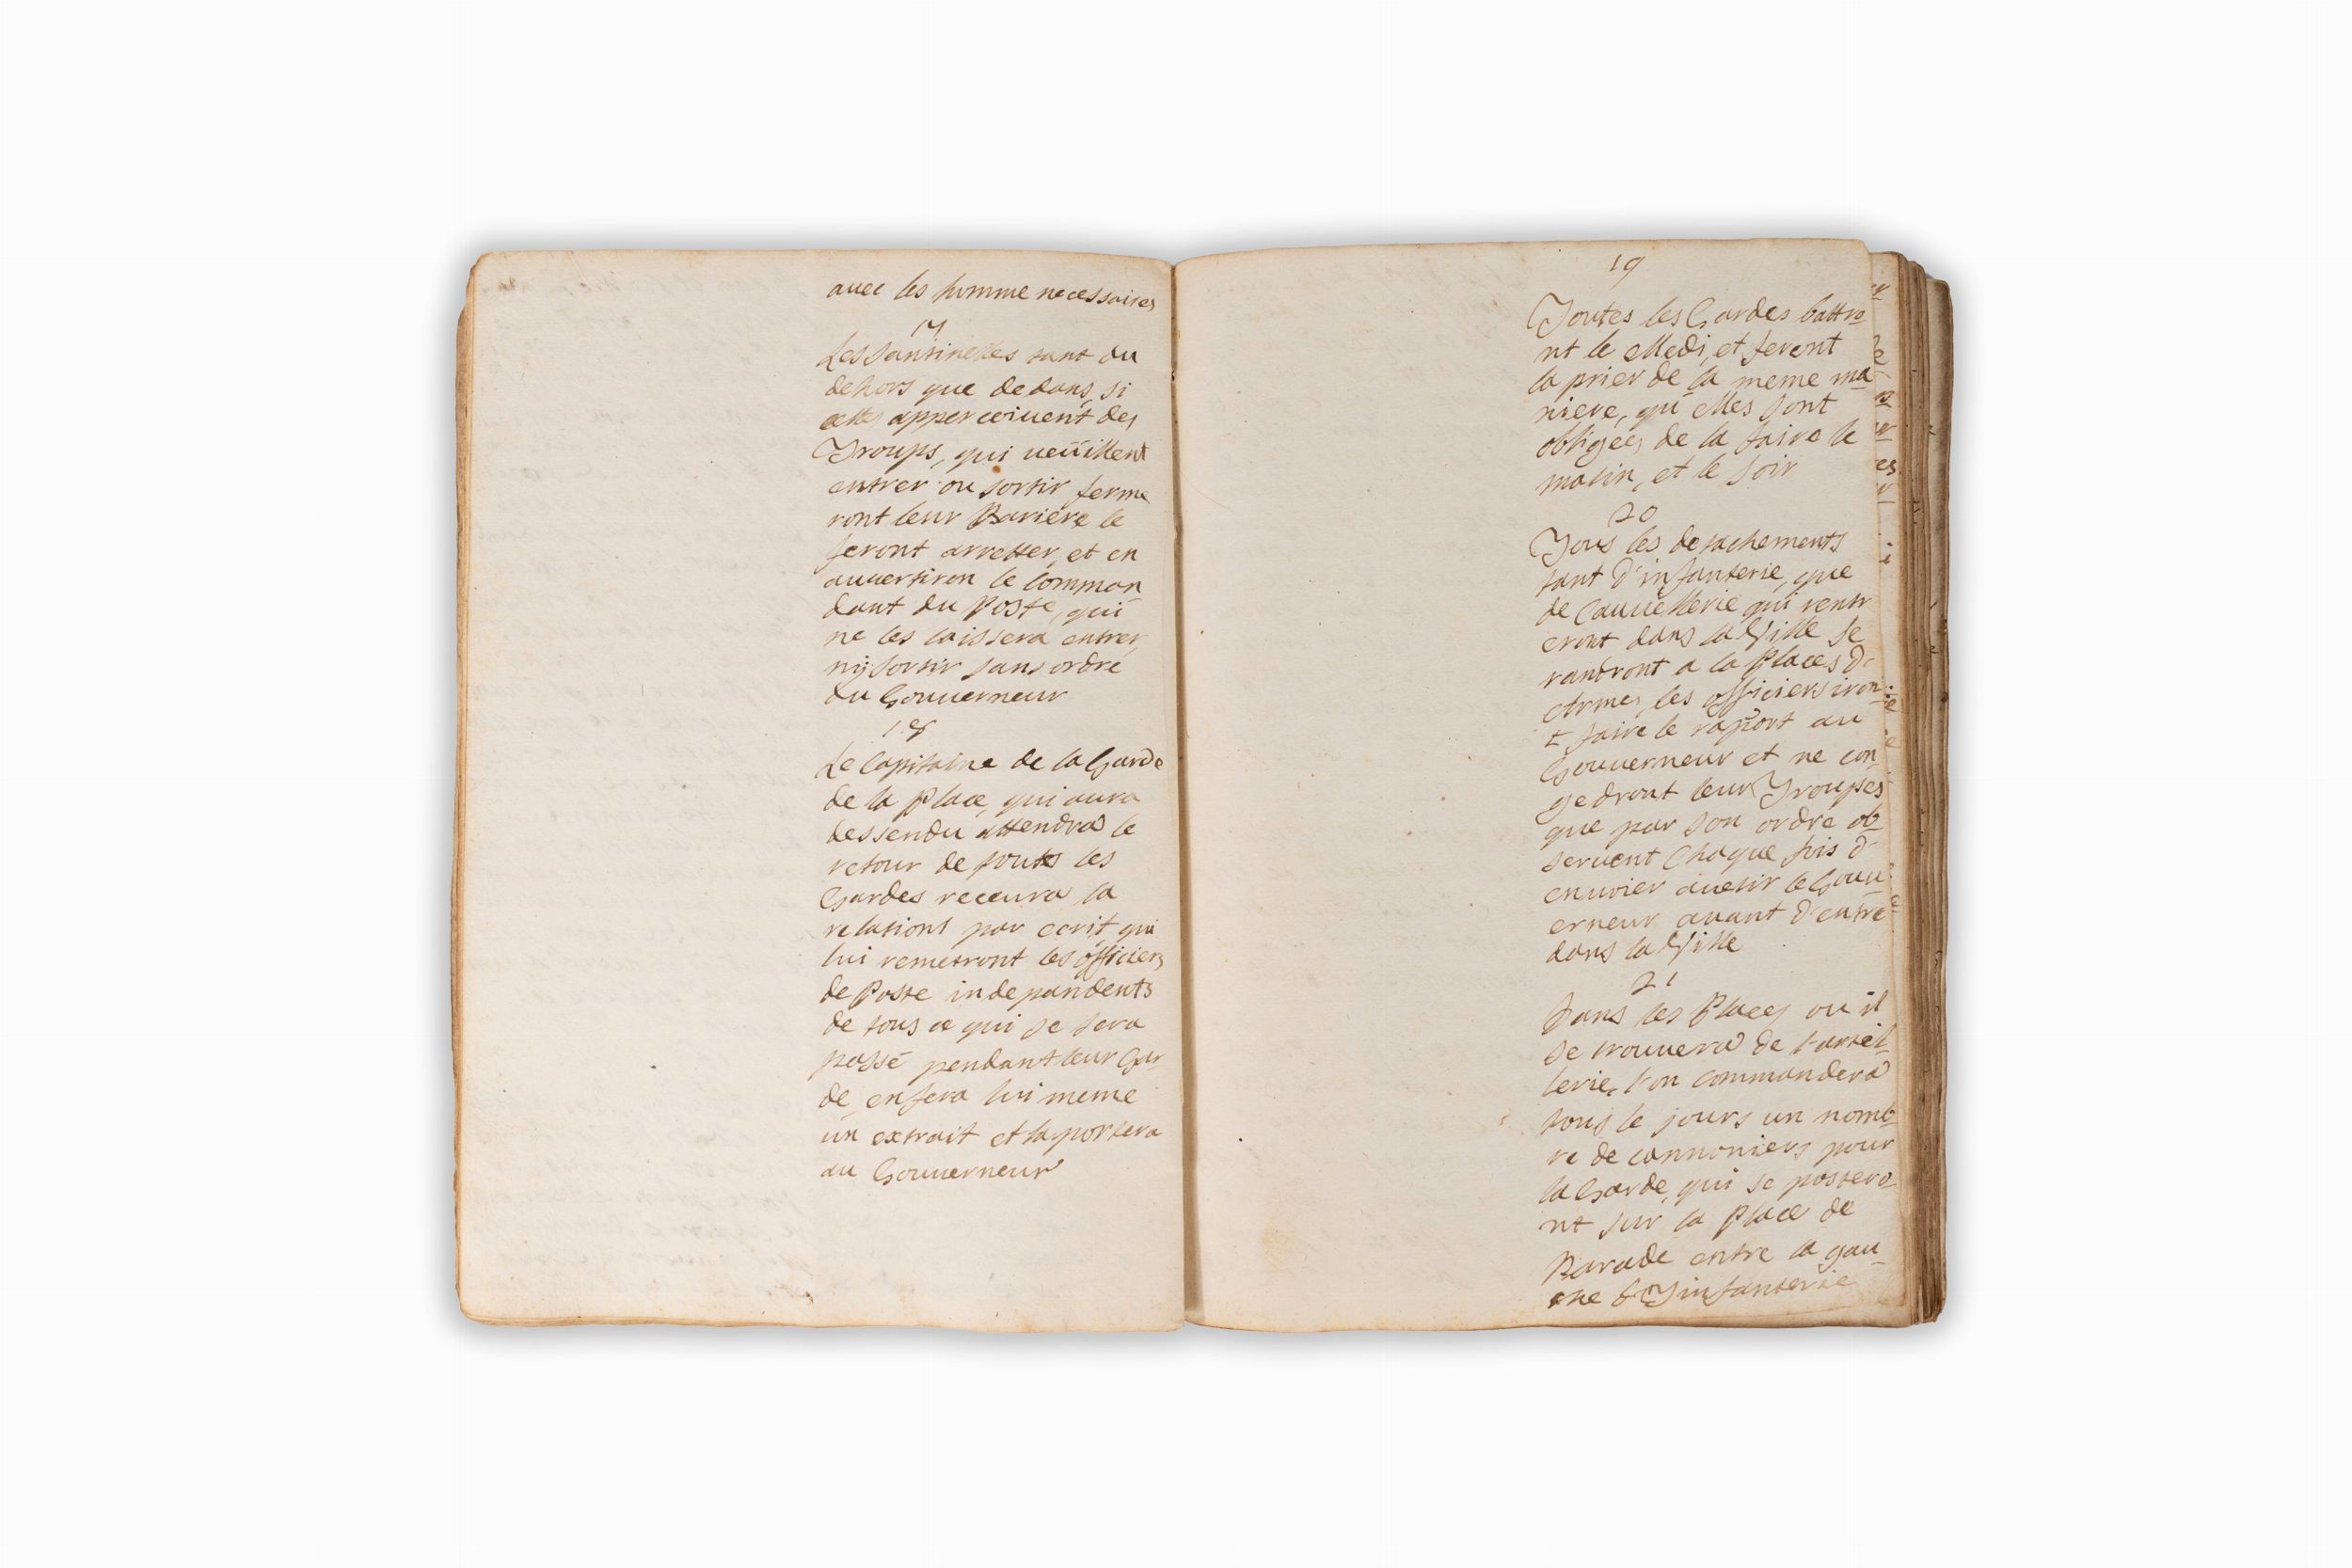 avec les homme necessaires
17
Les santinelles tant du
dehors que dedans, si
elles apperceivent des
Troups, qui veüillent
entrer ou sortir ferme
ront leur Bariere le
feront arretter, et en
auvertiron le Comman
dant du Poste, qui
ne les laissera entrer,
nij sortir sans ordre
du Gouverneur
18
Le Capitaine de la Garde
de la Place, qui aura
dessendu attendra le
retour de toutes les
Gardes recevra la
relations par ecrit qui
lui remetront les officiers
de Poste independents
de tous ce qui se sera
passé pendant leur Gar
de, en fera lui meme
un extrait et la portera
au Gouverneur
19
Toutes les Gardes battro
nt le Medi, et feront
la prier de la meme ma
niere, qu'elles sont
obligées de la faire le
matin, et le soir
20
Tous les detachements
tant d'infanterie, que
de Cauvellerie qui rentr
eront dans la Ville se
randront a la Places d'
Armes, les officiers iron
t faire le raport au
Gouverneur et ne con
gedront leur Troupes
que par son ordre ob
servent Chaque fois d'
envoier avertir le Gouv
erneur avant d'entre
dans la Ville
21
Dans les Places ou il
se trouvera de l'artil
lerie, l'on commandera
tous le jours un nomb
re de cannoniers pour
la Garde, qui se postero
nt sur la Place de
Parade entre la gau
che d'Infanterie